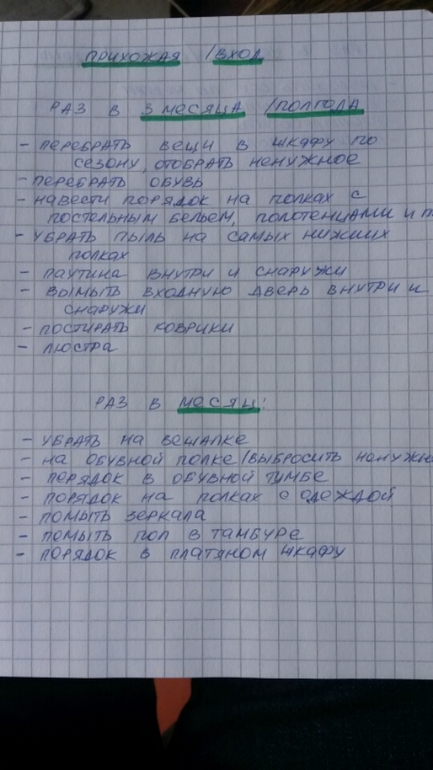 ПРИХОЖАЯ /ВХОД
РАЗ В 3 МЕСЯЦА /ПОЛГОДА
- ПЕРЕБРАТЬ ВЕЩИ В ШКАФУ ПО
СЕЗОНУ, ОТОБРАТЬ НЕНУЖНОЕ
- ПЕРЕБРАТЬ ОБУВЬ
- НАВЕСТИ ПОРЯДОК НА ПОЛКАХ С
ПОСТЕЛЬНЫМ БЕЛЬЕМ, ПОЛОТЕНЦАМИ И
- УБРАТЬ ПЫЛЬ НА САМЫХ НИЖНИХ
ПОЛКАХ
- ПАУТИНА ВНУТРИ И СНАРУЖИ
- ВЫМЫТЬ ВХОДНУЮ ДВЕРЬ ВНУТРИ И
СНАРУЖИ
- ПОСТИРАТЬ КОВРИКИ
- ЛЮСТРА
РАЗ В МЕСЯЦ:
- УБРАТЬ НА ВЕШАЛКЕ
- НА ОБУВНОЙ ПОЛКЕ /ВЫБРОСИТЬ
- ПОРЯДОК В ОБУВНОЙ ТУМБЕ
- ПОРЯДОК НА ПОЛКАХ С ОДЕЖДОЙ
- ПОМЫТЬ ЗЕРКАЛА
- ПОМЫТЬ ПОЛ В ТАМБУРЕ
- ПОРЯДОК В ПЛАТЯНОМ ШКАФУ